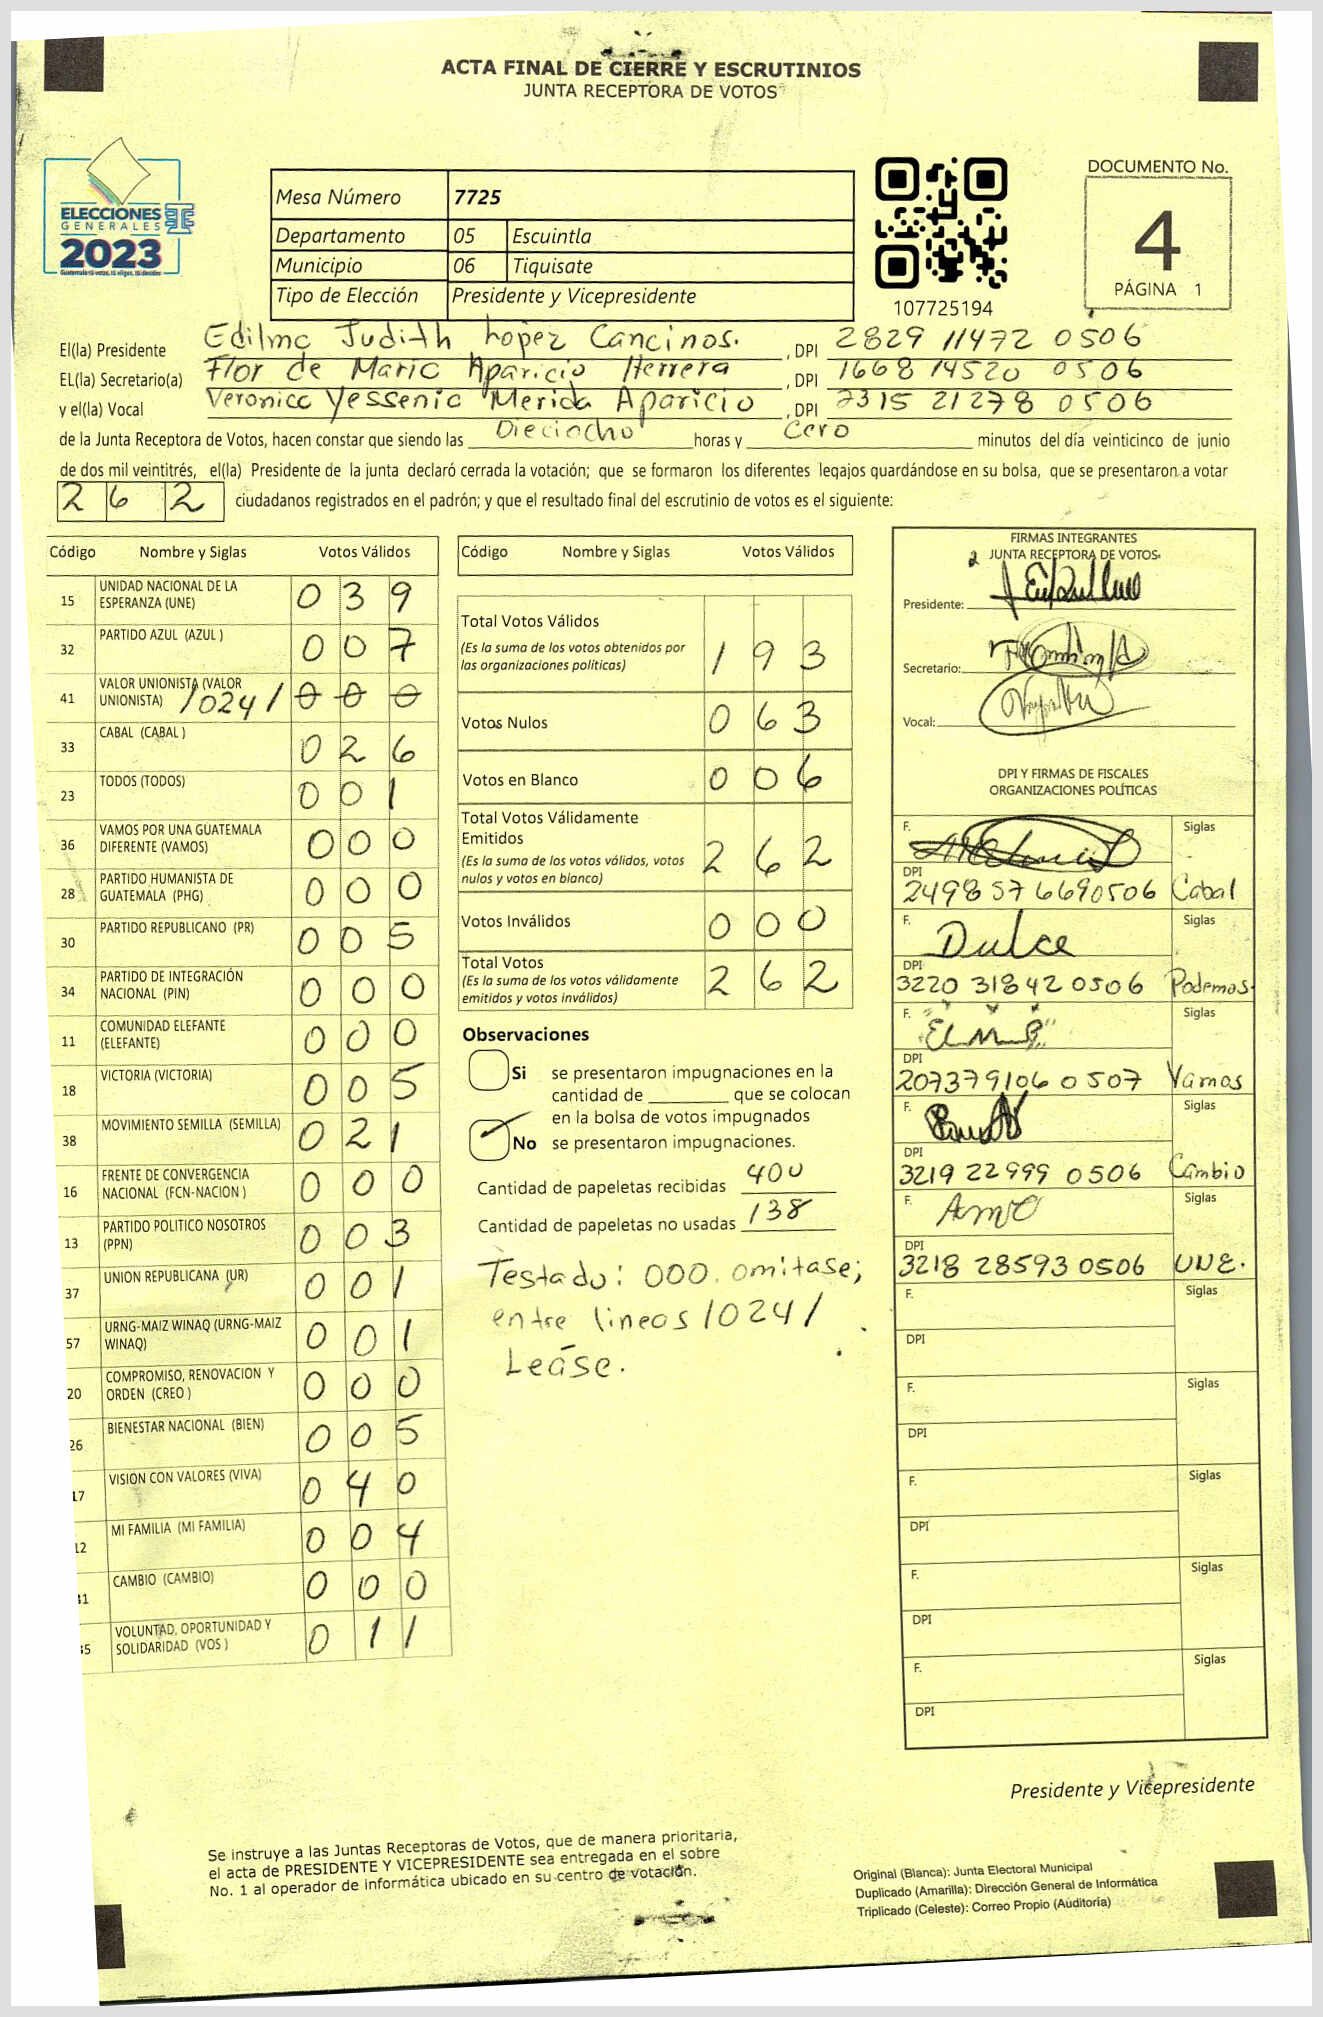 ACTA FINAL DE CIERRE Y ESCRUTINIOS
JUNTA RECEPTORA DE VOTOS
ELECCIONES
GENERALES
2023
Guatemala tú votas, tú eliges, tú decides
Mesa Número 7725
Departamento 05 Escuintla
Municipio 06 Tiquisate
Tipo de Elección Presidente y Vicepresidente
107725194
DOCUMENTO No.
4
PÁGINA 1
El(la) Presidente Edilma Judith Lopez Cancinos. , DPI 2829 11472 0506
EL(la) Secretario(a) Flor de Maria Aparicio Herrera , DPI 1668 14520 0506
y el(la) Vocal Veronica Yessenia Merida Aparicio , DPI 2315 21278 0506
de la Junta Receptora de Votos, hacen constar que siendo las Dieciocho horas y Cero minutos del día veinticinco de junio
de dos mil veintitrés, el(la) Presidente de la junta declaró cerrada la votación; que se formaron los diferentes legajos guardándose en su bolsa, que se presentaron a votar
262 ciudadanos registrados en el padrón; y que el resultado final del escrutinio de votos es el siguiente:
Código Nombre y Siglas Votos Válidos
15 UNIDAD NACIONAL DE LA ESPERANZA (UNE) 039
32 PARTIDO AZUL (AZUL ) 007
41 VALOR UNIONISTA (VALOR UNIONISTA) /024/ 000
33 CABAL (CABAL ) 026
23 TODOS (TODOS) 001
36 VAMOS POR UNA GUATEMALA DIFERENTE (VAMOS) 000
28 PARTIDO HUMANISTA DE GUATEMALA (PHG) 000
30 PARTIDO REPUBLICANO (PR) 005
34 PARTIDO DE INTEGRACIÓN NACIONAL (PIN) 000
11 COMUNIDAD ELEFANTE (ELEFANTE) 000
18 VICTORIA (VICTORIA) 005
38 MOVIMIENTO SEMILLA (SEMILLA) 021
16 FRENTE DE CONVERGENCIA NACIONAL (FCN-NACION ) 000
13 PARTIDO POLITICO NOSOTROS (PPN) 003
37 UNION REPUBLICANA (UR) 001
57 URNG-MAIZ WINAQ (URNG-MAIZ WINAQ) 001
20 COMPROMISO, RENOVACION Y ORDEN (CREO ) 000
26 BIENESTAR NACIONAL (BIEN) 005
17 VISION CON VALORES (VIVA) 040
12 MI FAMILIA (MI FAMILIA) 004
1 CAMBIO (CAMBIO) 000
5 VOLUNTAD, OPORTUNIDAD Y SOLIDARIDAD (VOS ) 011
Código Nombre y Siglas Votos Válidos
Total Votos Válidos
(Es la suma de los votos obtenidos por
las organizaciones políticas) 193
Votos Nulos 063
Votos en Blanco 006
Total Votos Válidamente
Emitidos
(Es la suma de los votos válidos, votos
nulos y votos en blanco) 262
Votos Inválidos 000
Total Votos
(Es la suma de los votos válidamente
emitidos y votos inválidos) 262
Observaciones
Si se presentaron impugnaciones en la
cantidad de ________ que se colocan
en la bolsa de votos impugnados
No se presentaron impugnaciones.
Cantidad de papeletas recibidas 400
Cantidad de papeletas no usadas 138
Testado: 000. omitase;
entre lineas /024/
Leáse.
FIRMAS INTEGRANTES
JUNTA RECEPTORA DE VOTOS
Presidente:
Secretario:
Vocal:
DPI Y FIRMAS DE FISCALES
ORGANIZACIONES POLÍTICAS
F. Siglas
DPI
2498 57669 0506 Cabal
F. Dulce Siglas
DPI
3220 31842 0506 Podemos.
F. Siglas
DPI
2073791060507 Vamos
F. Siglas
DPI
3219 22999 0506 Cambio
F. Siglas
DPI
3218 28593 0506 UNE.
F. Siglas
DPI
F. Siglas
DPI
F. Siglas
DPI
F. Siglas
DPI
F. Siglas
DPI
Presidente y Vicepresidente
Se instruye a las Juntas Receptoras de Votos, que de manera prioritaria,
el acta de PRESIDENTE Y VICEPRESIDENTE sea entregada en el sobre
No. 1 al operador de informática ubicado en su centro de votación.
Original (Blanca): Junta Electoral Municipal
Duplicado (Amarilla): Dirección General de Informática
Triplicado (Celeste): Correo Propio (Auditoría)